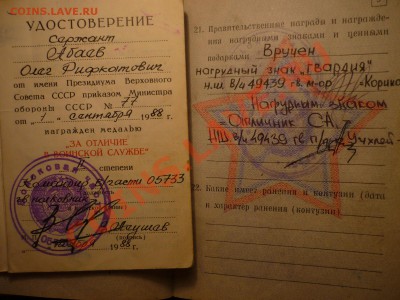 COINS.LAVE.RU
УДОСТОВЕРЕНИЕ
Сержант
Абаев
Олег Рифкотович
от имени Президиума Верховного
Совета СССР приказом Министра
обороны СССР № 77
от "1" сентября 1988 г.
награжден медалью
"ЗА ОТЛИЧИЕ
В ВОИНСКОЙ СЛУЖБЕ"
степени
Командир в/части 05733
полковник
1988
21. Правительственные награды и награжде-
ния нагрудными знаками и ценными
подарками
Вручен
нагрудный знак "Гвардия"
н.ш. в/ч 49439 гв. м-ор
Нагрудным знаком
Отличник СА
НШ в/ч 49439 гв. п/п-к
22. Какие имеет ранения и контузии (дата
и характер ранения (контузии)